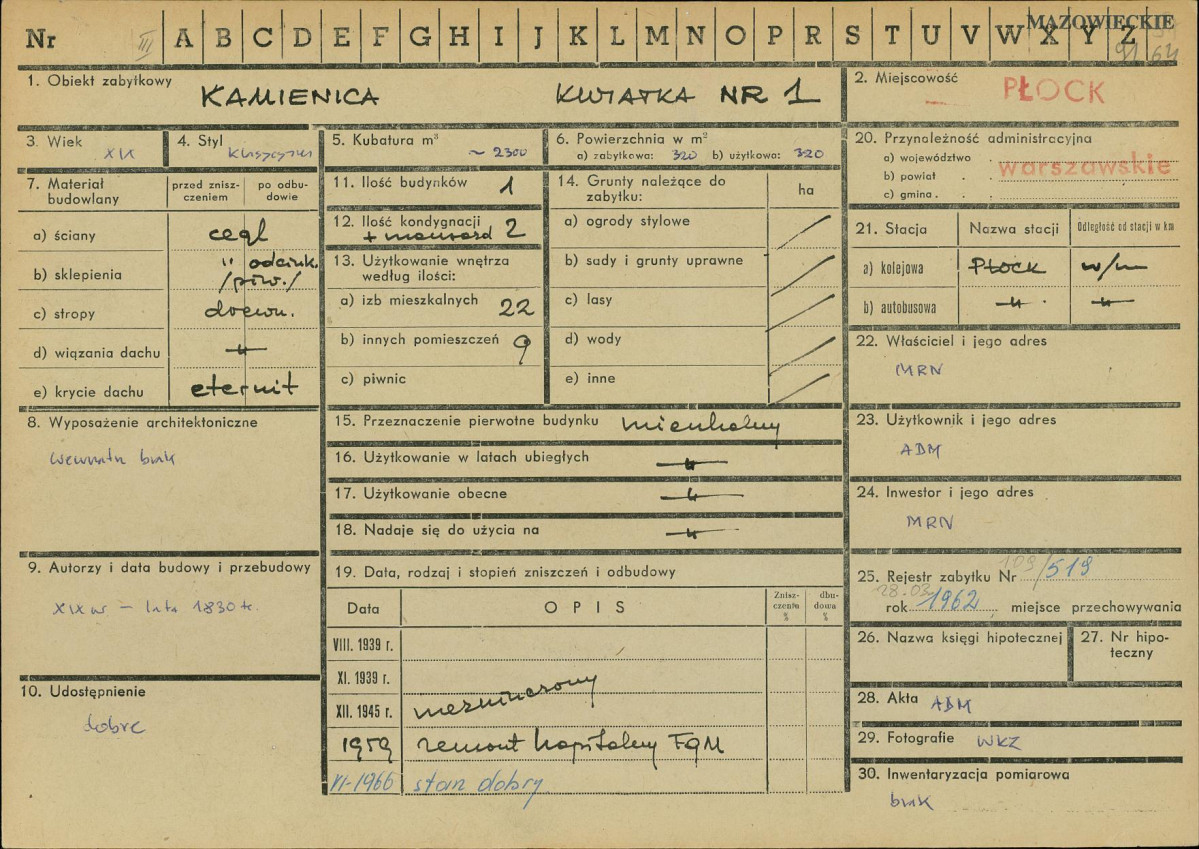 MAZOWIECKIE
Nr III A B C D E F G H I J K L M N O P R S T U V W X Y Z
1. Obiekt zabytkowy
KAMIENICA KWIATKA NR 1
2. Miejscowość
PŁOCK
3. Wiek
XIX
4. Styl
klasycyzm
5. Kubatura m³
~ 2300
6. Powierzchnia w m²
a) zabytkowa: 320 b) użytkowa: 320
20. Przynależność administracyjna
a) województwo
warszawskie
b) powiat
c) gmina
7. Materiał budowlany
przed zniszczeniem
po odbudowie
a) ściany cegl
b) sklepienia " odcink. /piw./
c) stropy drewn.
d) wiązania dachu —"—
e) krycie dachu eternit
11. Ilość budynków 1
12. Ilość kondygnacji
+ mansard 2
13. Użytkowanie wnętrza
według ilości:
a) izb mieszkalnych 22
b) innych pomieszczeń 9
c) piwnic
14. Grunty należące do
zabytku:
ha
a) ogrody stylowe
b) sady i grunty uprawne
c) lasy
d) wody
e) inne
21. Stacja Nazwa stacji Odległość od stacji w km
a) kolejowa PŁOCK w/m
b) autobusowa —"— —"—
22. Właściciel i jego adres
MRN
8. Wyposażenie architektoniczne
wewnątrz brak
15. Przeznaczenie pierwotne budynku mieszkalny
16. Użytkowanie w latach ubiegłych —"—
17. Użytkowanie obecne —"—
18. Nadaje się do użycia na —"—
23. Użytkownik i jego adres
ADM
24. Inwestor i jego adres
MRN
9. Autorzy i data budowy i przebudowy
XIX w — lata 1830 te.
10. Udostępnienie
dobre
19. Data, rodzaj i stopień zniszczeń i odbudowy
Data OPIS Zniszczenie % dbudowa %
VIII. 1939 r.
XI. 1939 r.
XII. 1945 r. niezniszczony
1959 remont kapitalny FGM
XI-1966 stan dobry
25. Rejestr zabytku Nr 109/519
28.03.
rok 1962 miejsce przechowywania
26. Nazwa księgi hipotecznej
27. Nr hipoteczny
28. Akta ADM
29. Fotografie WKZ
30. Inwentaryzacja pomiarowa
brak